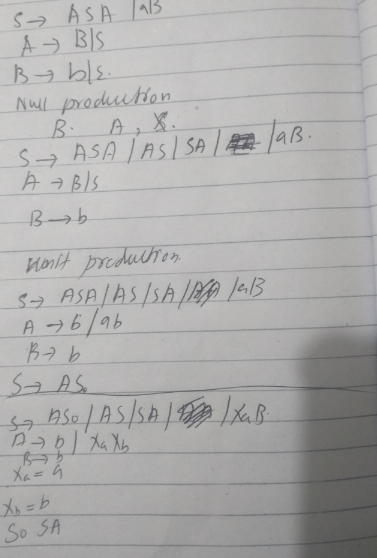 S → ASA | aB
A → B|S
B → b|ε.
Null production
B. A, X.
S → ASA | AS | SA | | aB.
A → B|S
B → b
Unit production
S → ASA | AS | SA | | aB
A → b | ab
B → b
S → AS₀
S → AS₀ | AS | SA | | XaB
A → b | XaXb
B → b
Xa = a
Xb = b
So SA